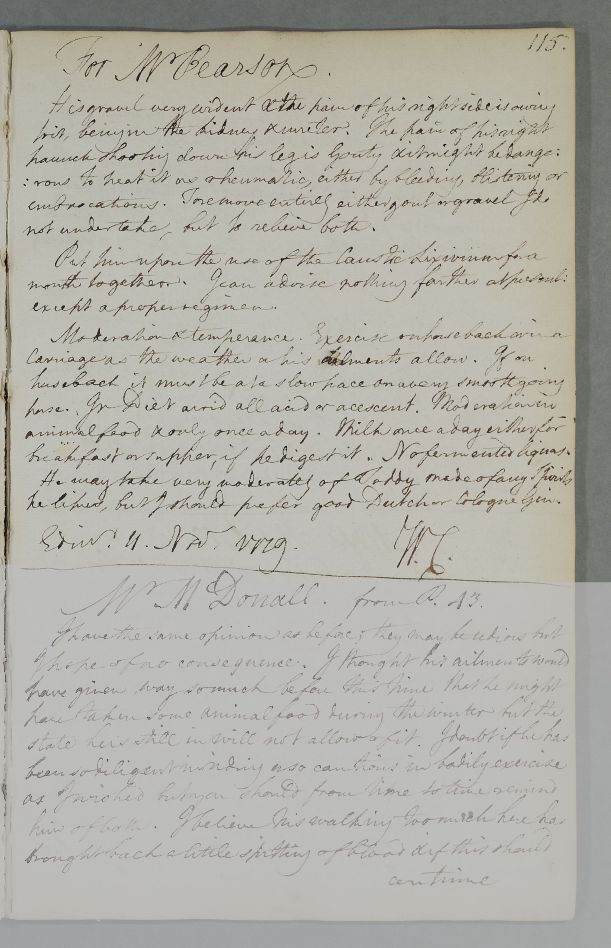 115.
For Mr Pearson.
His gravel very evident & the pain of his right side is owing
to it, being in the kidney & ureter. The pain of his right
haunch shooting down his leg is Gouty & it might be dange:
:rous to treat it as rheumatic, either by bleeding, blistering or
embrocations. To remove entirely either gout or gravel I do
not undertake, but to relieve both.
Put him upon the use of the Caustic Lixivium for a
month together. I can advise nothing farther at present:
except a proper regimen.
Moderation & temperance. Exercise on horseback or in a
Carriage as the weather or his ailments allow. If on
horseback it must be at a slow pace on a very smooth going
horse. In Diet avoid all acid or acescent. Moderation in
animal food & only once a day. Milk once a day either for
breakfast or supper, if he digest it. No fermented liquors.
He may take very moderately of a Toddy made of any Spirits
he likes, but I should prefer good Dutch or Cologne Gin.
Edinr. 11. Novr. 1779. W.C.
Mr McDonall. from P. 43.
I have the same opinion as before; they may be tedious but
I hope of no consequence. I thought his ailments would
have given way so much before this time that he might
have taken some animal food during the winter but the
state he is still in will not allow of it. I doubt if he has
been so diligent minding & so cautious in bodily exercise
as I wished but you should from time to time remind
him of both. I believe his walking too much here has
brought back a little spitting of blood & if this should
continue